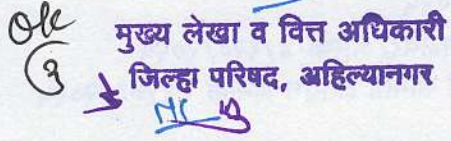 मुख्य लेखा व वित्त अधिकारी
जिल्हा परिषद, अहिल्यानगर